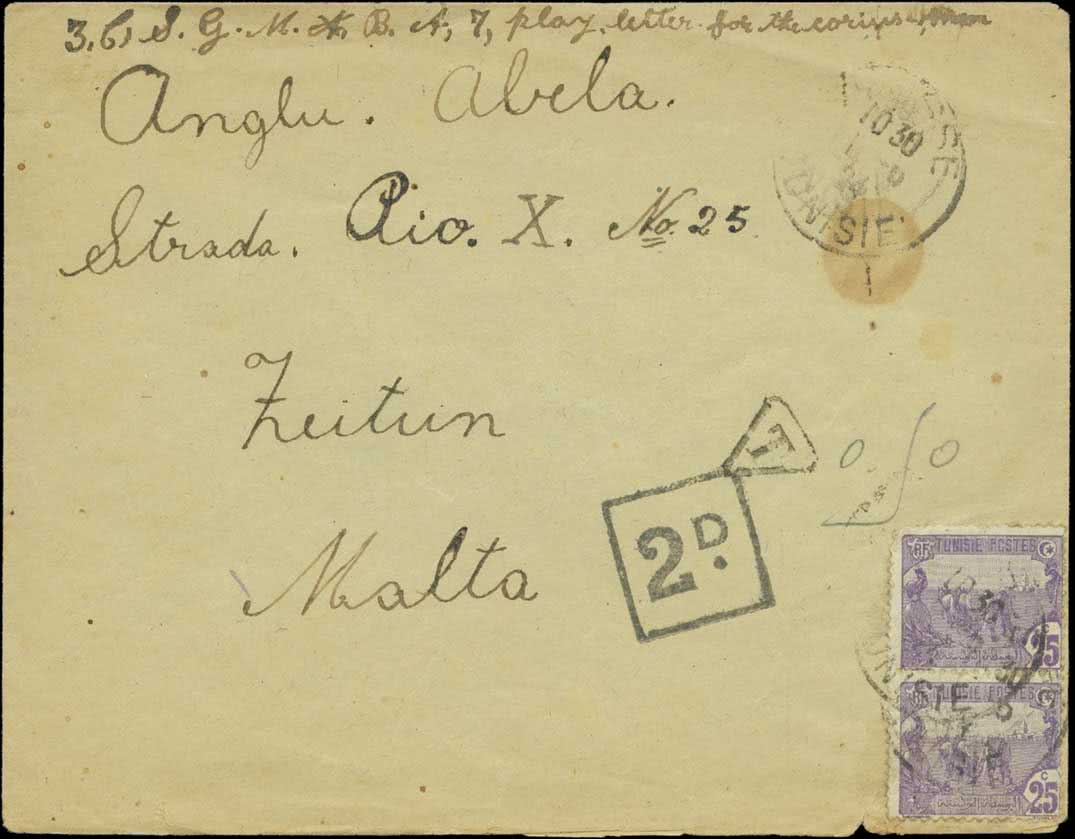 3. 6, S. G. M. B. A, 7, play. letter for the
Anglu. Abela.
Strada. Pio. X. No. 25
Zeitun
Malta
10 30
TUNISIE
T
0.50
2D.
RF TUNISIE POSTES
25 c
TUNISIE POSTES
25 c